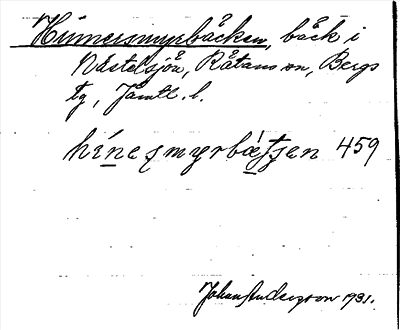 Hinnersmyrbäcken, bäck i
Nästelsjön, Rätans sn, Bergs
tg, Jämtl. l.
hìnesmyrbæ̀ʃʃen 459
Johan Anderzon 1931.